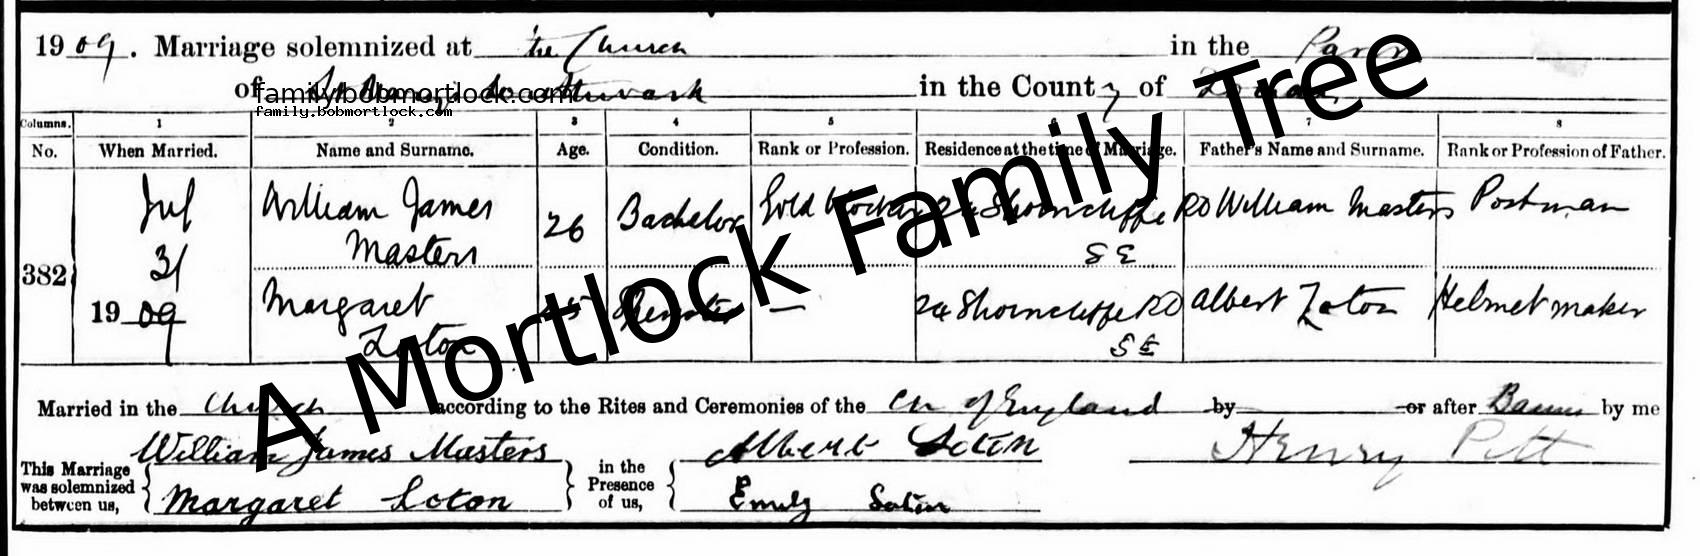 1909. Marriage solemnized at the Church in the Parish
of Southwark in the County of London
family.bobmortlock.com
family.bobmortlock.com
Columns. 1 2 3 4 5 6 7 8
No. When Married. Name and Surname. Age. Condition. Rank or Profession. Residence at the time of Marriage. Father's Name and Surname. Rank or Profession of Father.
382 Jul 31 1909
William James Masters 26 Bachelor Gold Worker 24 Shorncliffe RD SE William Masters Postman
Margaret Loton 25 Spinster — 24 Shorncliffe RD SE Albert Loton Helmet maker
A Mortlock Family Tree
Married in the Church according to the Rites and Ceremonies of the Ch of England by or after Banns by me
This Marriage was solemnized between us, William James Masters in the Presence of us, Albert Loton Henry Pitt
Margaret Loton Emily Loton